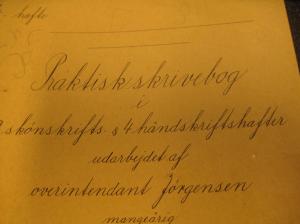 hæfte
Praktisk skrivebog
i
skónskrifts & 4 håndskriftshafter
udarbejdet af
overintendant Jórgensen
mangeårig